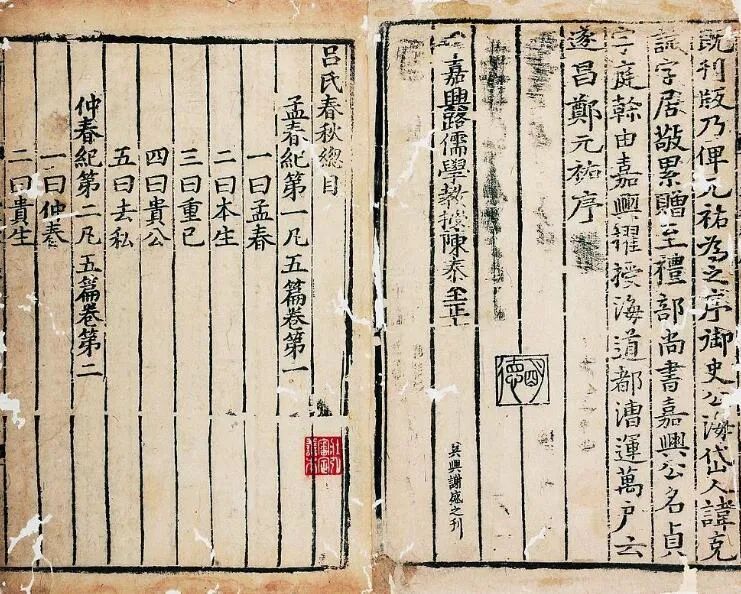 既刊版乃俾元祐為之序御史公海岱人諱克
誠字居敬累贈至禮部尚書嘉興公名貞
字庭幹由嘉興擢授海道都漕運萬戶云
遂昌鄭元祐序
嘉興路儒學教授陳泰至正
吳興謝盛之刊
呂氏春秋總目
孟春紀第一凡五篇卷第一
一曰孟春
二曰本生
三曰重已
四曰貴公
五曰去私
仲春紀第二凡五篇卷第二
一曰仲春
二曰貴生